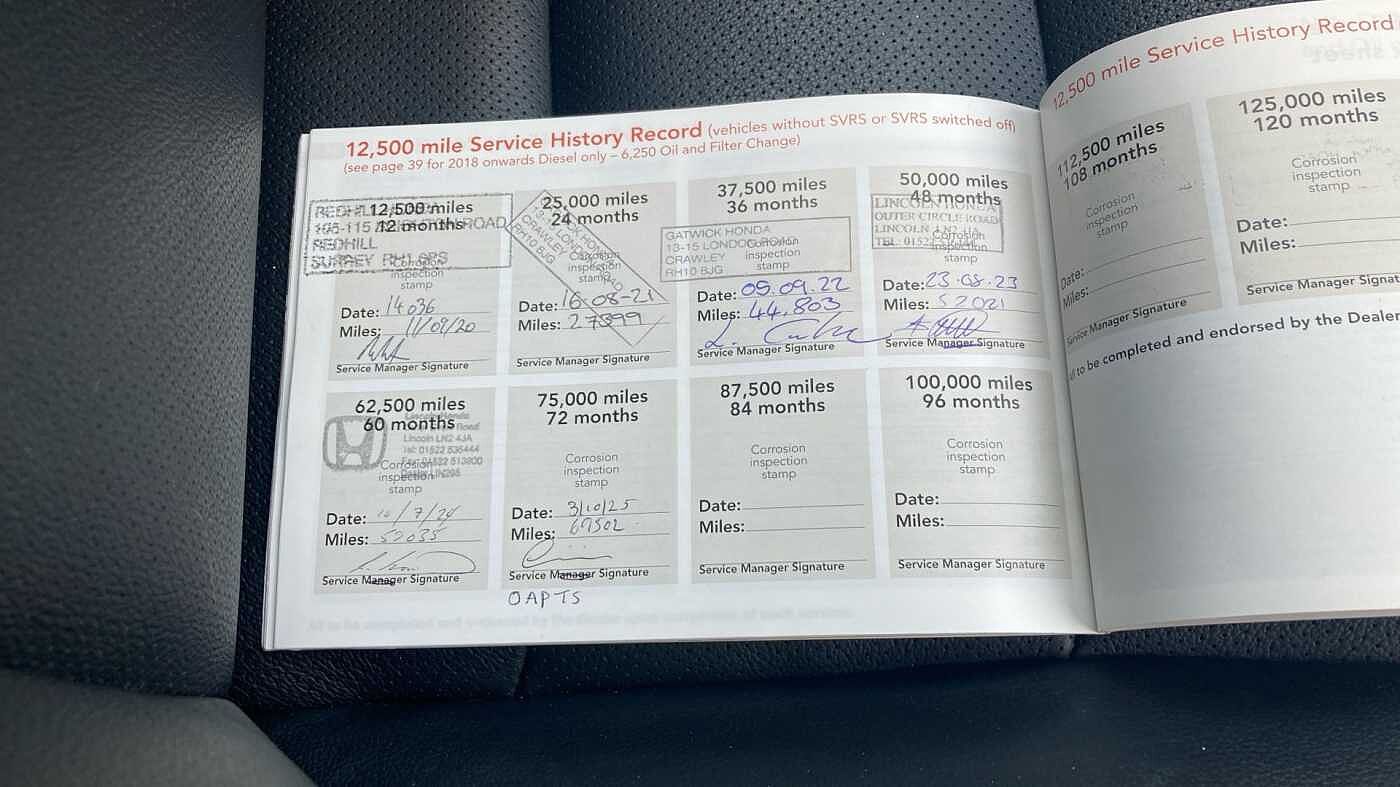 12,500 mile Service History Record (vehicles without SVRS or SVRS switched off)
(see page 39 for 2018 onwards Diesel only – 6,250 Oil and Filter Change)
12,500 miles
12 months
REDHILL
SURREY RH1
Corrosion
inspection
stamp
Date: 14036
Miles: 11/09/20
Service Manager Signature
25,000 miles
24 months
CRAWLEY
RH10 8JG
Corrosion
inspection
stamp
Date: 16-08-21
Miles: 27899
Service Manager Signature
37,500 miles
36 months
GATWICK HONDA
13-15 LONDON ROAD
CRAWLEY
RH10 8JG
Corrosion
inspection
stamp
Date: 05.09.22
Miles: 44,803
Service Manager Signature
50,000 miles
48 months
LINCOLN HONDA
OUTER CIRCLE ROAD
LINCOLN
TEL: 01522
Corrosion
inspection
stamp
Date: 23.08.23
Miles: 52021
Service Manager Signature
62,500 miles
60 months
Lincoln Honda
Road
Lincoln LN2 4JA
Corrosion
inspection
stamp
Date: /7/24
Miles: 52035
Service Manager Signature
75,000 miles
72 months
Corrosion
inspection
stamp
Date: 3/10/25
Miles: 67502
Service Manager Signature
OAPTS
87,500 miles
84 months
Corrosion
inspection
stamp
Date:
Miles:
Service Manager Signature
100,000 miles
96 months
Corrosion
inspection
stamp
Date:
Miles:
Service Manager Signature
12,500 mile Service History Record
112,500 miles
108 months
Corrosion
inspection
stamp
Date:
Miles:
Service Manager Signature
125,000 miles
120 months
Corrosion
inspection
stamp
Date:
Miles:
Service Manager Signat
to be completed and endorsed by the Dealer